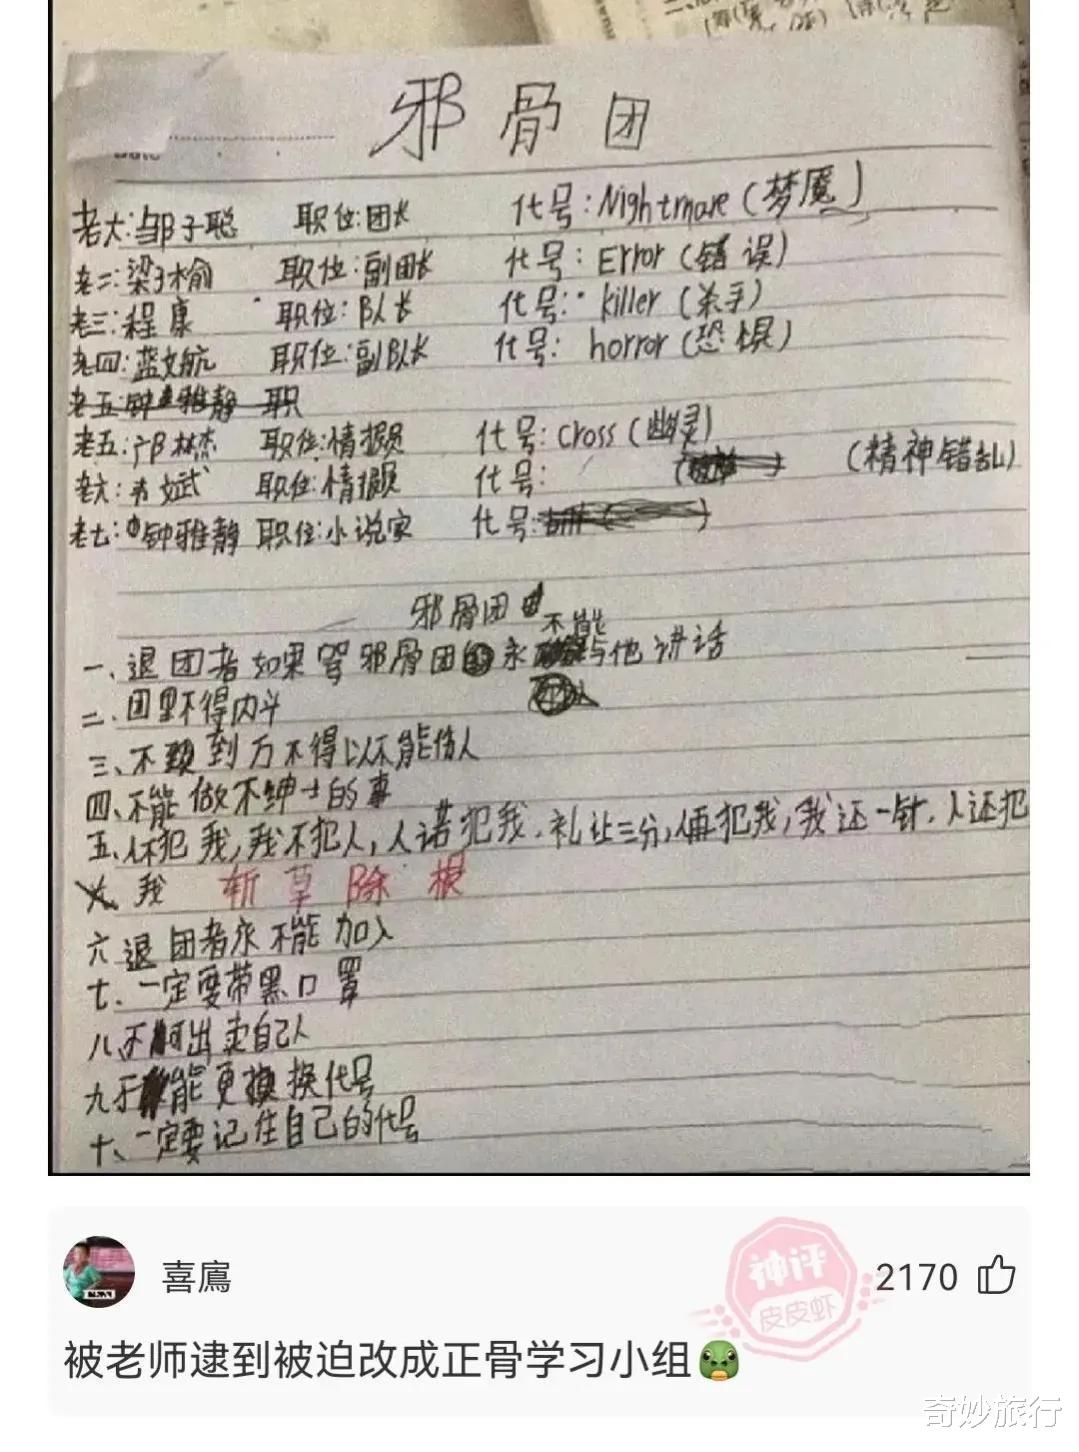 邪骨团
老大:邹子聪 职位:团长 代号:Nightmare(梦魇)
老二:梁子榆 职位:副团长 代号:Error(错误)
老三:程康 职位:队长 代号:killer(杀手)
老四:蓝文航 职位:副队长 代号:horror(恐惧)
老五:钟雅静 职
老五:邝林杰 职位:情报员 代号:Cross(幽灵)
老六: 斌 职位:情报员 代号: (精神错乱)
老七:钟雅静 职位:小说家 代号:
邪骨团
不能
一、退团者如果骂邪骨团永与他讲话
二、团里不得内斗
三、不到万不得以不能伤人
四、不能做不绅士的事
五、人不犯我,我不犯人,人诺犯我.礼让三分,人再犯我,我还一针.人还犯
我 斩草除根
六退团者永不能加入
七、一定要带黑口罩
八、不可出卖自己人
九不能更换代号
十、一定要记住自己的代号
喜廌
神评
皮皮虾
2170
被老师逮到被迫改成正骨学习小组
奇妙旅行